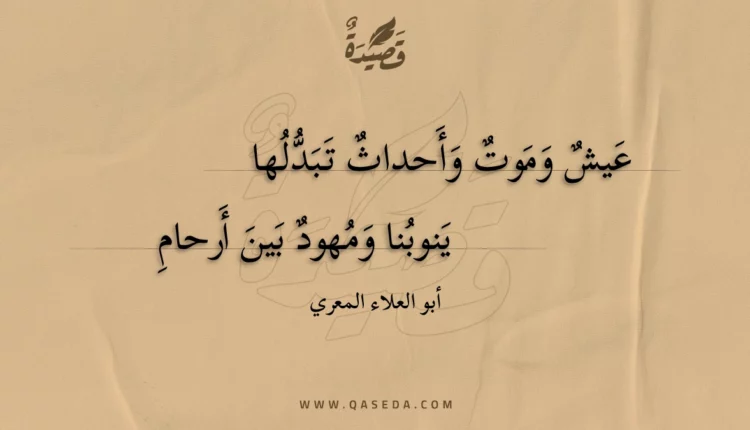 قَصِيدَةٌ
عَيشٌ وَمَوتٌ وَأَحداثٌ تَبَدُّلُها
يَنوبُنا وَمُهودٌ بَينَ أَرحامِ
أبو العلاء المعري
WWW.QASEDA.COM